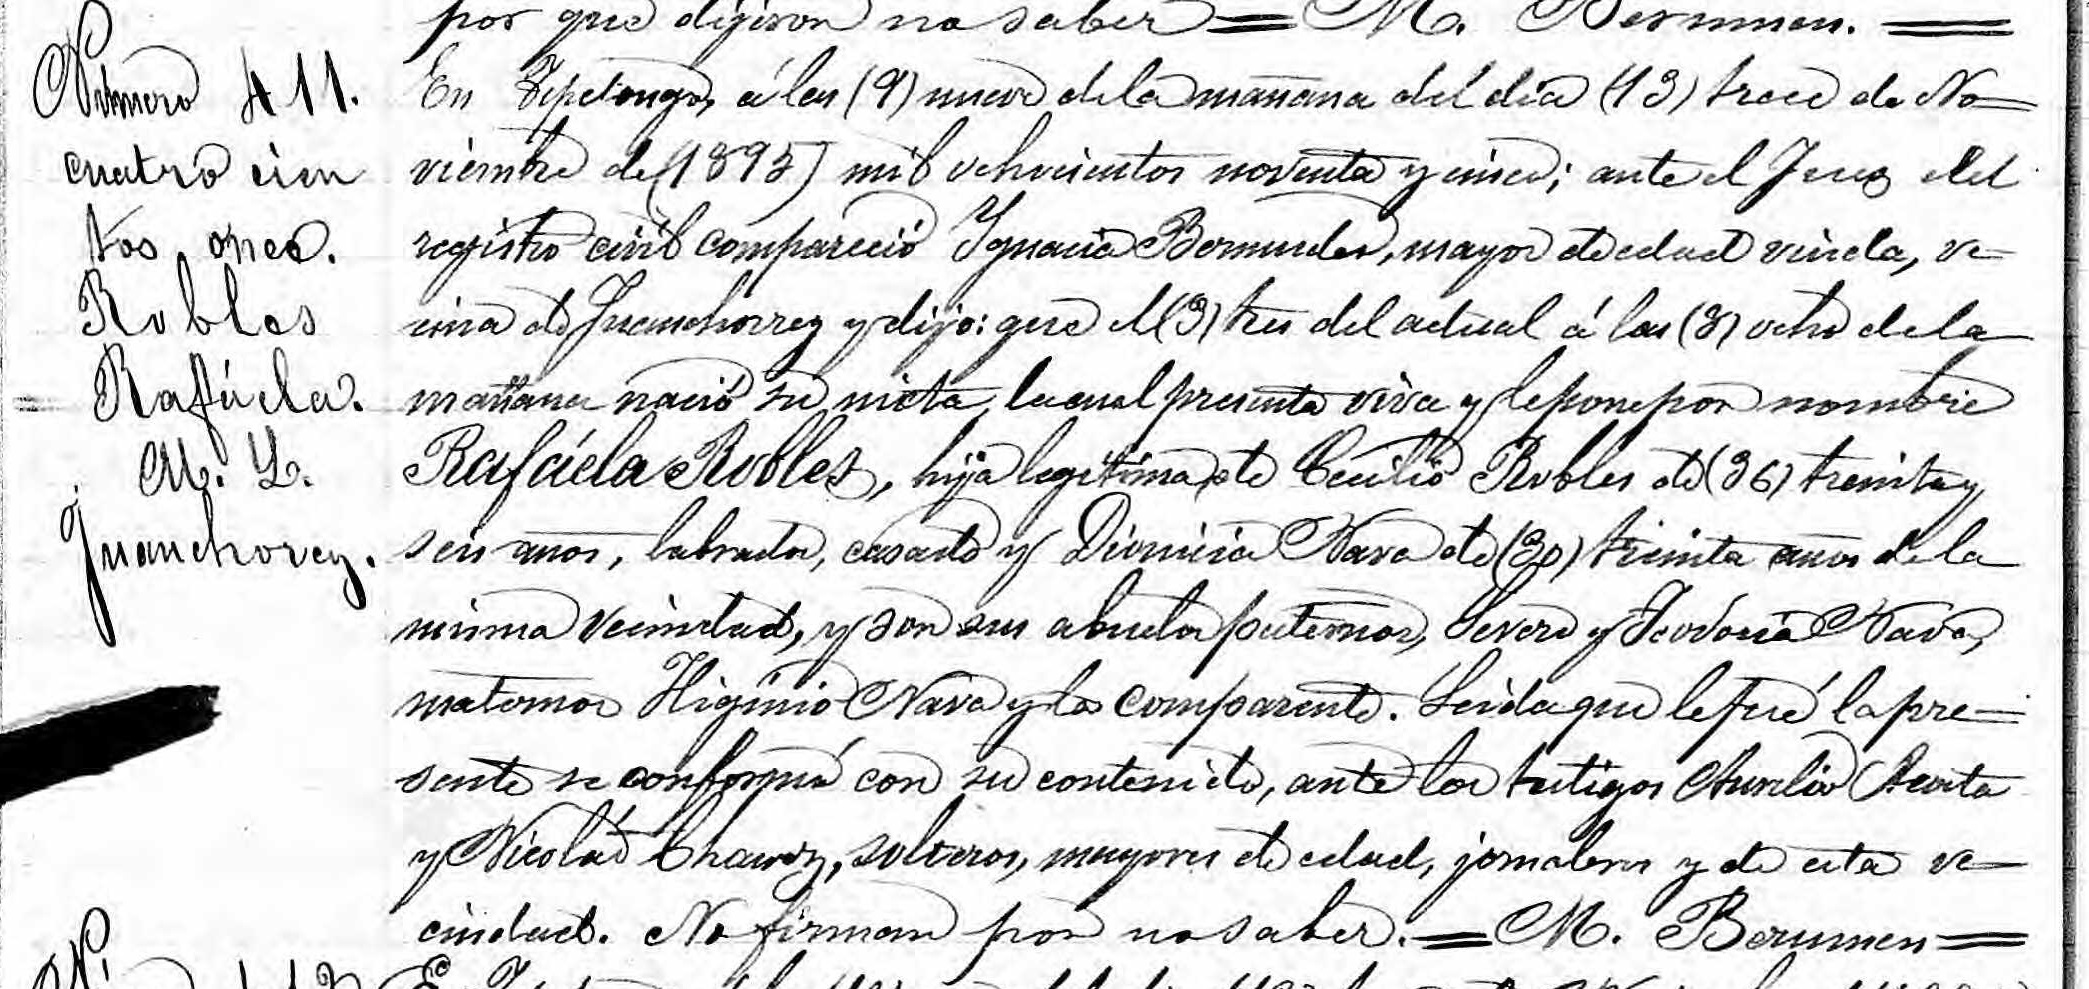 por que digeron no saber = M. Berumen. =
Número 411.
cuatro cien
tos once.
Robles
Rafáela.
M. L.
Juanchorey.
En Tepetongo, á las (9) nueve de la mañana del dia (13) trece de No-
viembre de (1895) mil ochocientos noventa y cinco; ante el Juez del
registro civil compareció Ignacia Bermudes, mayor de edad viuda, ve-
cina de Juanchorrey y dijo: que el (3) tres del actual á las (8) ocho de la
mañana nació su nieta, la cual presenta viva y le pone por nombre
Rafáela Robles, hija legitima de Cecilio Robles de (36) treinta y
seis años, labrador, casado y Dionicia Nava de (30) treinta años de la
misma vecindad, y son sus abuelos paternos, Severo y Teodocia Nava,
maternos Higinio Nava y la comparente. Leida que le fué la pre-
sente se conformá con su contenido, ante los testigos Aurelio Acosta
y Nicolás Chavez, solteros, mayores de edad, jornaleros y de esta ve-
cindad. No firman por no saber. = M. Berumen =